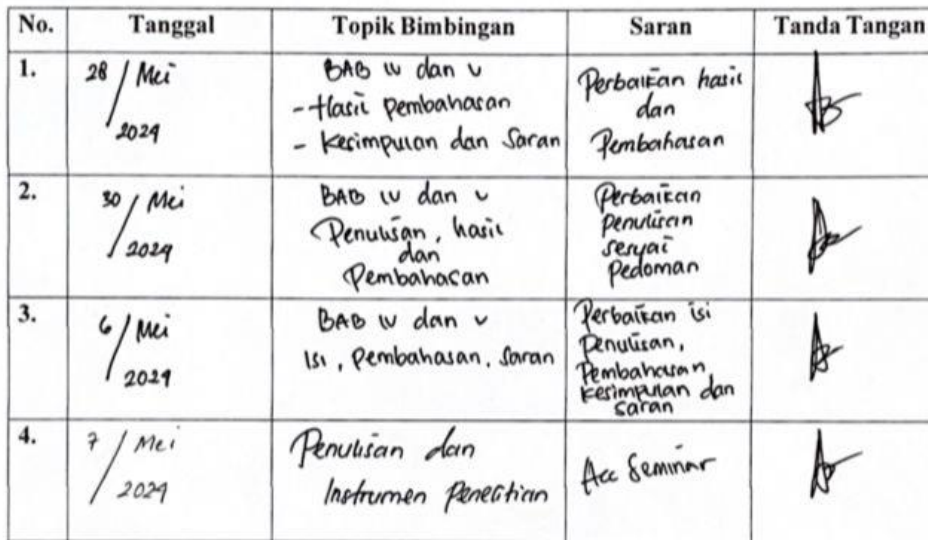 No. Tanggal Topik Bimbingan Saran Tanda Tangan
1.
28 / Mei
2024
BAB IV dan V
- Hasil pembahasan
- Kesimpulan dan Saran
Perbaikan hasil
dan
Pembahasan
2.
30 / Mei
2024
BAB IV dan V
Penulisan, hasil
dan
Pembahasan
Perbaikan
penulisan
sesuai
Pedoman
3.
6 / Mei
2024
BAB IV dan V
Isi, Pembahasan, Saran
Perbaikan isi
Penulisan,
Pembahasan,
kesimpulan dan
saran
4.
7 / Mei
2024
Penulisan dan
Instrumen Penelitian
Acc Seminar